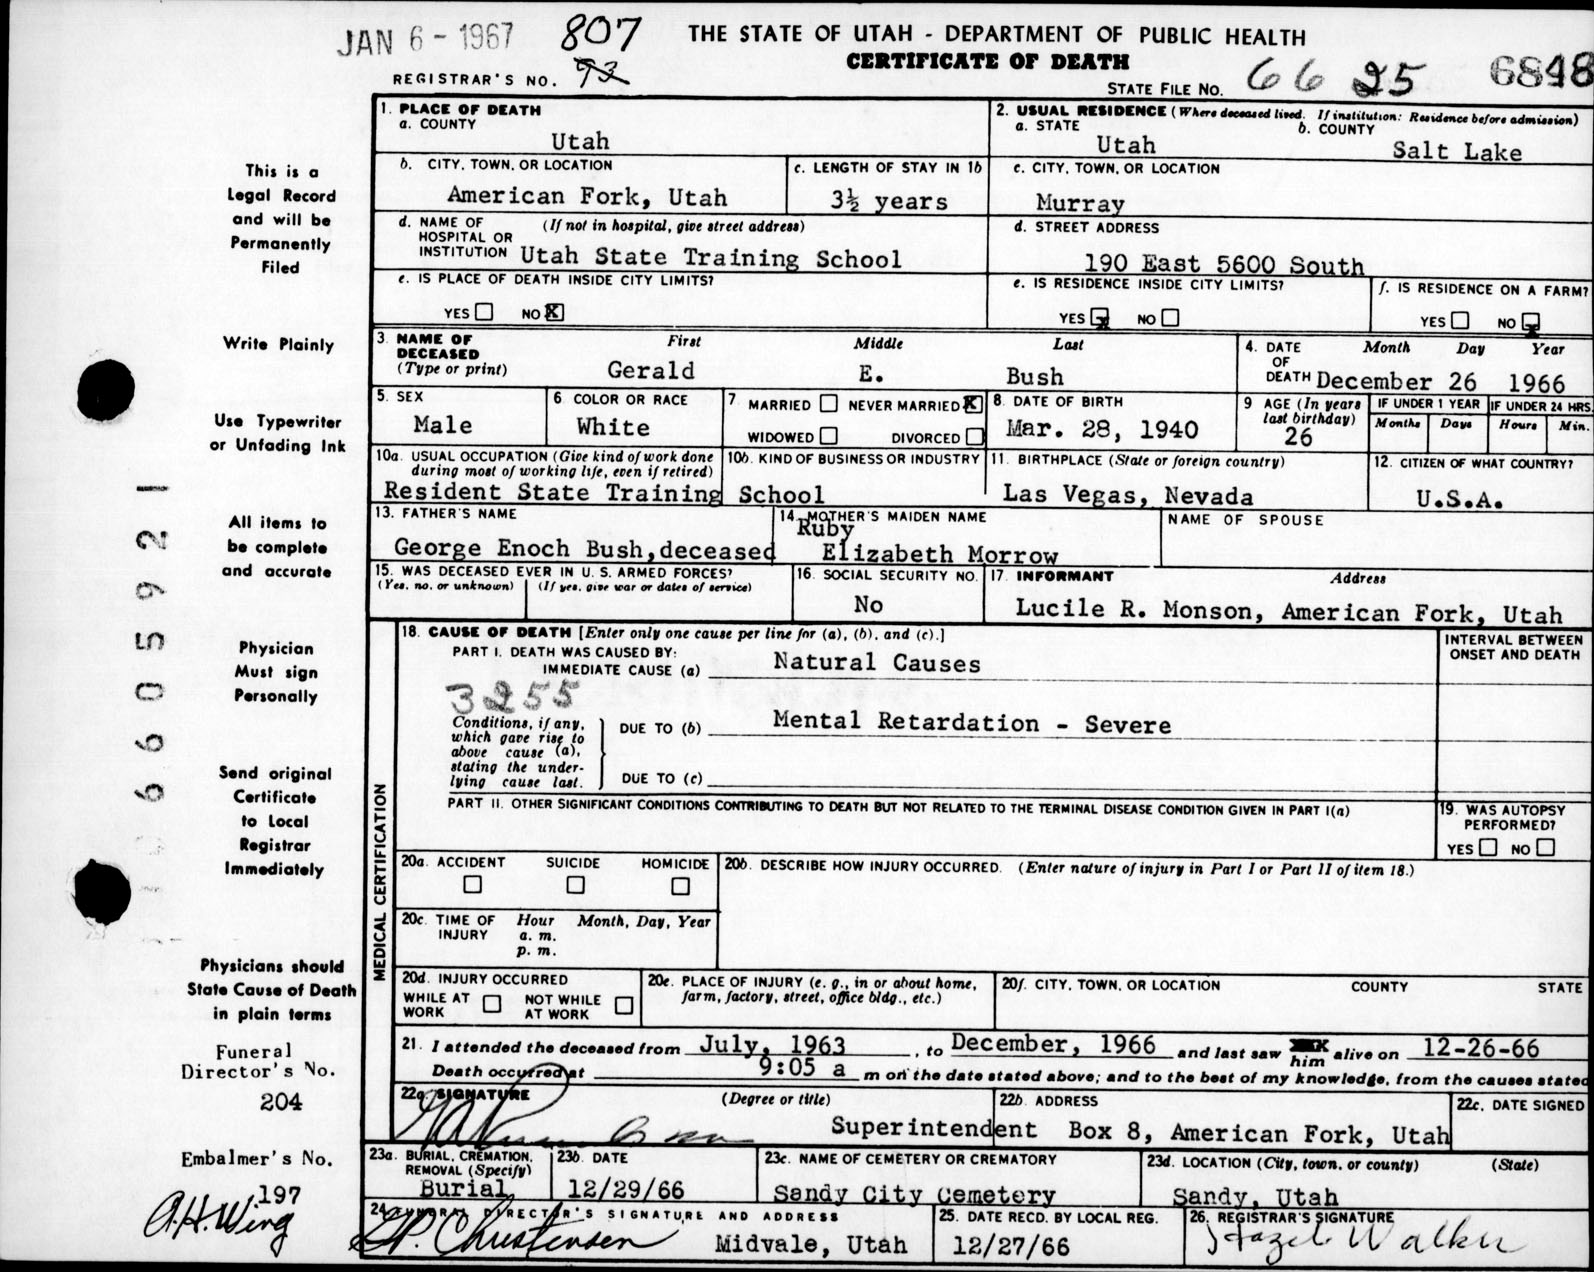 JAN 6 - 1967 807 THE STATE OF UTAH - DEPARTMENT OF PUBLIC HEALTH
CERTIFICATE OF DEATH
REGISTRAR'S NO. 93 STATE FILE NO. 66 25
1. PLACE OF DEATH
a. COUNTY
Utah
2. USUAL RESIDENCE (Where deceased lived. If institution: Residence before admission)
a. STATE b. COUNTY
Utah Salt Lake
b. CITY, TOWN, OR LOCATION
American Fork, Utah
c. LENGTH OF STAY IN 1b
3½ years
c. CITY, TOWN, OR LOCATION
Murray
d. NAME OF HOSPITAL OR INSTITUTION (If not in hospital, give street address)
Utah State Training School
d. STREET ADDRESS
190 East 5600 South
e. IS PLACE OF DEATH INSIDE CITY LIMITS?
YES NO X
e. IS RESIDENCE INSIDE CITY LIMITS?
YES X NO
f. IS RESIDENCE ON A FARM?
YES NO X
3. NAME OF DECEASED (Type or print)
First Middle Last
Gerald E. Bush
4. DATE OF DEATH
Month Day Year
December 26 1966
5. SEX
Male
6. COLOR OR RACE
White
7. MARRIED NEVER MARRIED X
WIDOWED DIVORCED
8. DATE OF BIRTH
Mar. 28, 1940
9. AGE (In years last birthday)
26
IF UNDER 1 YEAR IF UNDER 24 HRS.
Months Days Hours Min.
10a. USUAL OCCUPATION (Give kind of work done during most of working life, even if retired)
10b. KIND OF BUSINESS OR INDUSTRY
Resident State Training School
11. BIRTHPLACE (State or foreign country)
Las Vegas, Nevada
12. CITIZEN OF WHAT COUNTRY?
U.S.A.
13. FATHER'S NAME
George Enoch Bush, deceased
14. MOTHER'S MAIDEN NAME
Ruby
Elizabeth Morrow
NAME OF SPOUSE
15. WAS DECEASED EVER IN U. S. ARMED FORCES?
(Yes, no, or unknown) (If yes, give war or dates of service)
16. SOCIAL SECURITY NO.
No
17. INFORMANT Address
Lucile R. Monson, American Fork, Utah
MEDICAL CERTIFICATION
18. CAUSE OF DEATH [Enter only one cause per line for (a), (b), and (c).]
INTERVAL BETWEEN ONSET AND DEATH
PART I. DEATH WAS CAUSED BY:
IMMEDIATE CAUSE (a) Natural Causes
3255
Conditions, if any, which gave rise to above cause (a), stating the underlying cause last.
DUE TO (b) Mental Retardation - Severe
DUE TO (c)
PART II. OTHER SIGNIFICANT CONDITIONS CONTRIBUTING TO DEATH BUT NOT RELATED TO THE TERMINAL DISEASE CONDITION GIVEN IN PART I(a)
19. WAS AUTOPSY PERFORMED?
YES NO
20a. ACCIDENT SUICIDE HOMICIDE
20b. DESCRIBE HOW INJURY OCCURRED. (Enter nature of injury in Part I or Part II of item 18.)
20c. TIME OF INJURY Hour Month, Day, Year
a. m.
p. m.
20d. INJURY OCCURRED
WHILE AT WORK NOT WHILE AT WORK
20e. PLACE OF INJURY (e. g., in or about home, farm, factory, street, office bldg., etc.)
20f. CITY, TOWN, OR LOCATION COUNTY STATE
21. I attended the deceased from July, 1963, to December, 1966 and last saw him alive on 12-26-66
Death occurred at 9:05 a m on the date stated above; and to the best of my knowledge, from the causes stated
22a. SIGNATURE (Degree or title)
Superintendent
22b. ADDRESS
Box 8, American Fork, Utah
22c. DATE SIGNED
23a. BURIAL, CREMATION, REMOVAL (Specify)
Burial
23b. DATE
12/29/66
23c. NAME OF CEMETERY OR CREMATORY
Sandy City Cemetery
23d. LOCATION (City, town, or county) (State)
Sandy, Utah
24. FUNERAL DIRECTOR'S SIGNATURE AND ADDRESS
Christensen Midvale, Utah
25. DATE RECD. BY LOCAL REG.
12/27/66
26. REGISTRAR'S SIGNATURE
Hazel Walker
This is a
Legal Record
and will be
Permanently
Filed
Write Plainly
Use Typewriter
or Unfading Ink
All items to
be complete
and accurate
Physician
Must sign
Personally
Send original
Certificate
to Local
Registrar
Immediately
Physicians should
State Cause of Death
in plain terms
Funeral
Director's No.
204
Embalmer's No.
197
A.H. Wing
6605921